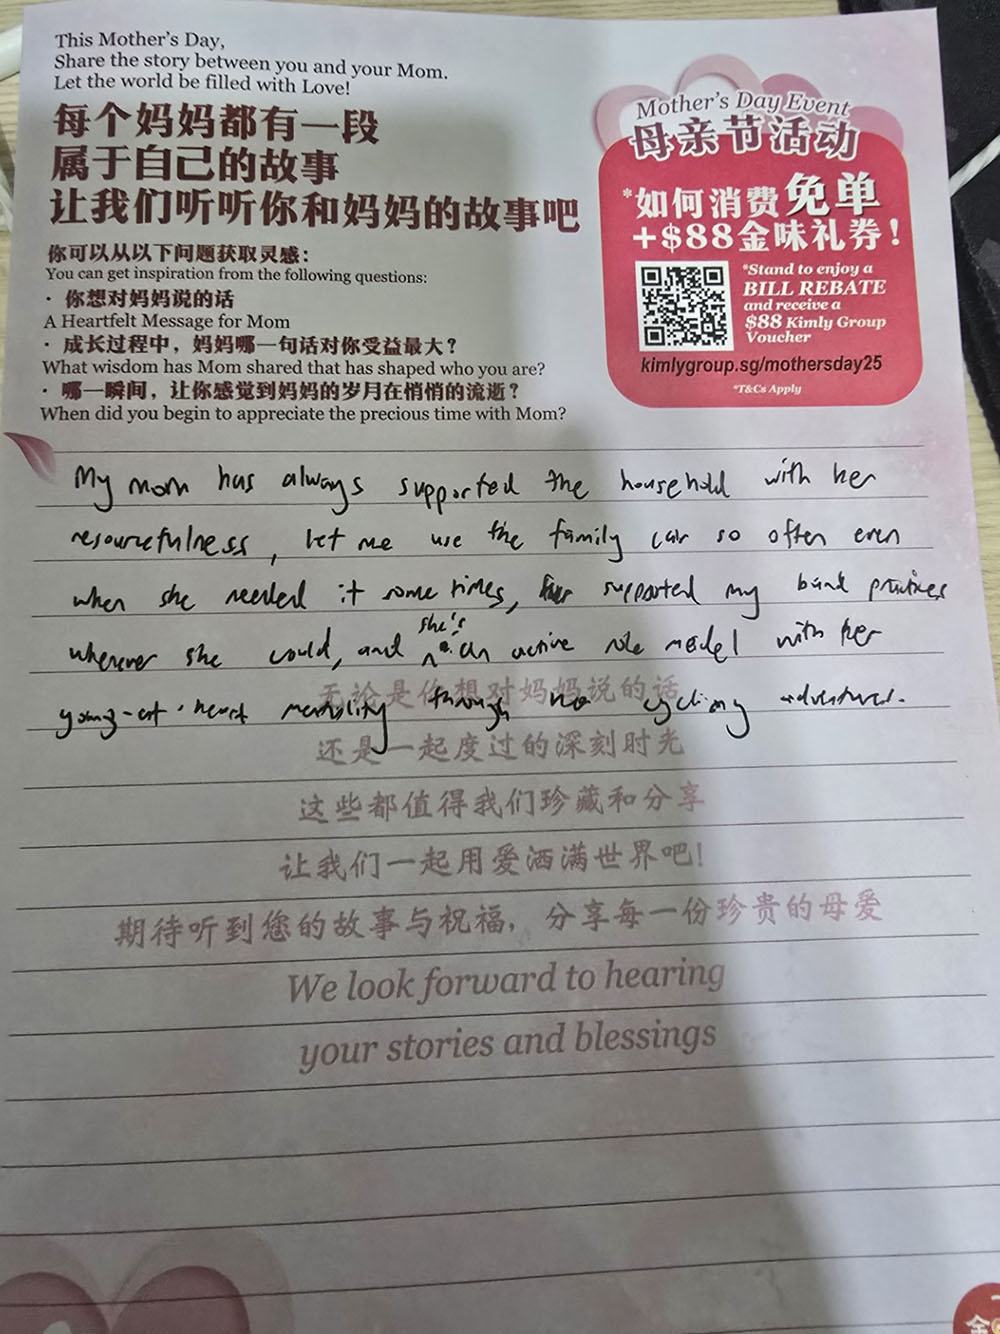 This Mother's Day,
Share the story between you and your Mom.
Let the world be filled with Love!
每个妈妈都有一段
属于自己的故事
让我们听听你和妈妈的故事吧
你可以从以下问题获取灵感：
You can get inspiration from the following questions:
· 你想对妈妈说的话
A Heartfelt Message for Mom
· 成长过程中，妈妈哪一句话对你受益最大？
What wisdom has Mom shared that has shaped who you are?
· 哪一瞬间，让你感觉到妈妈的岁月在悄悄的流逝？
When did you begin to appreciate the precious time with Mom?
Mother's Day Event
母亲节活动
*如何消费免单
+$88金味礼券！
*Stand to enjoy a
BILL REBATE
and receive a
$88 Kimly Group
Voucher
kimlygroup.sg/mothersday25
*T&Cs Apply
My mom has always supported the household with her
resourcefulness, let me use the family car so often even
when she needed it sometimes, supported my band practices
wherever she could, and she's an active role model with her
young-at-heart mentality through her cycling adventures.
无论是你想对妈妈说的话
还是一起度过的深刻时光
这些都值得我们珍藏和分享
让我们一起用爱洒满世界吧！
期待听到您的故事与祝福，分享每一份珍贵的母爱
We look forward to hearing
your stories and blessings